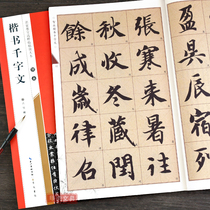 盈昃辰宿列
張寒来暑往
秋收冬藏閏
餘成歲律吕
楷书千字文